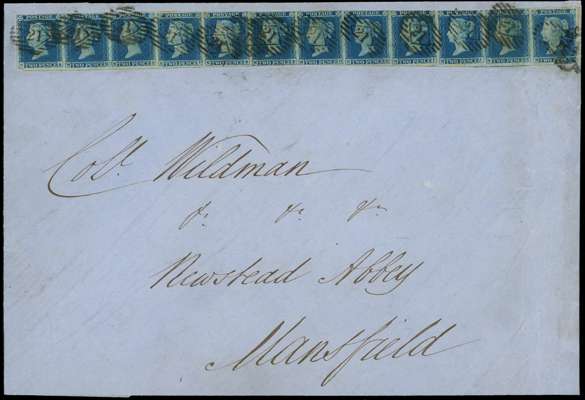 POSTAGE POSTAGE POSTAGE POSTAGE POSTAGE POSTAGE POSTAGE POSTAGE POSTAGE POSTAGE POSTAGE POSTAGE
TWO PENCE TWO PENCE TWO PENCE TWO PENCE TWO PENCE TWO PENCE TWO PENCE TWO PENCE TWO PENCE TWO PENCE TWO PENCE TWO PENCE
Col. Wildman
&c. &c. &c.
Newstead Abbey
Mansfield